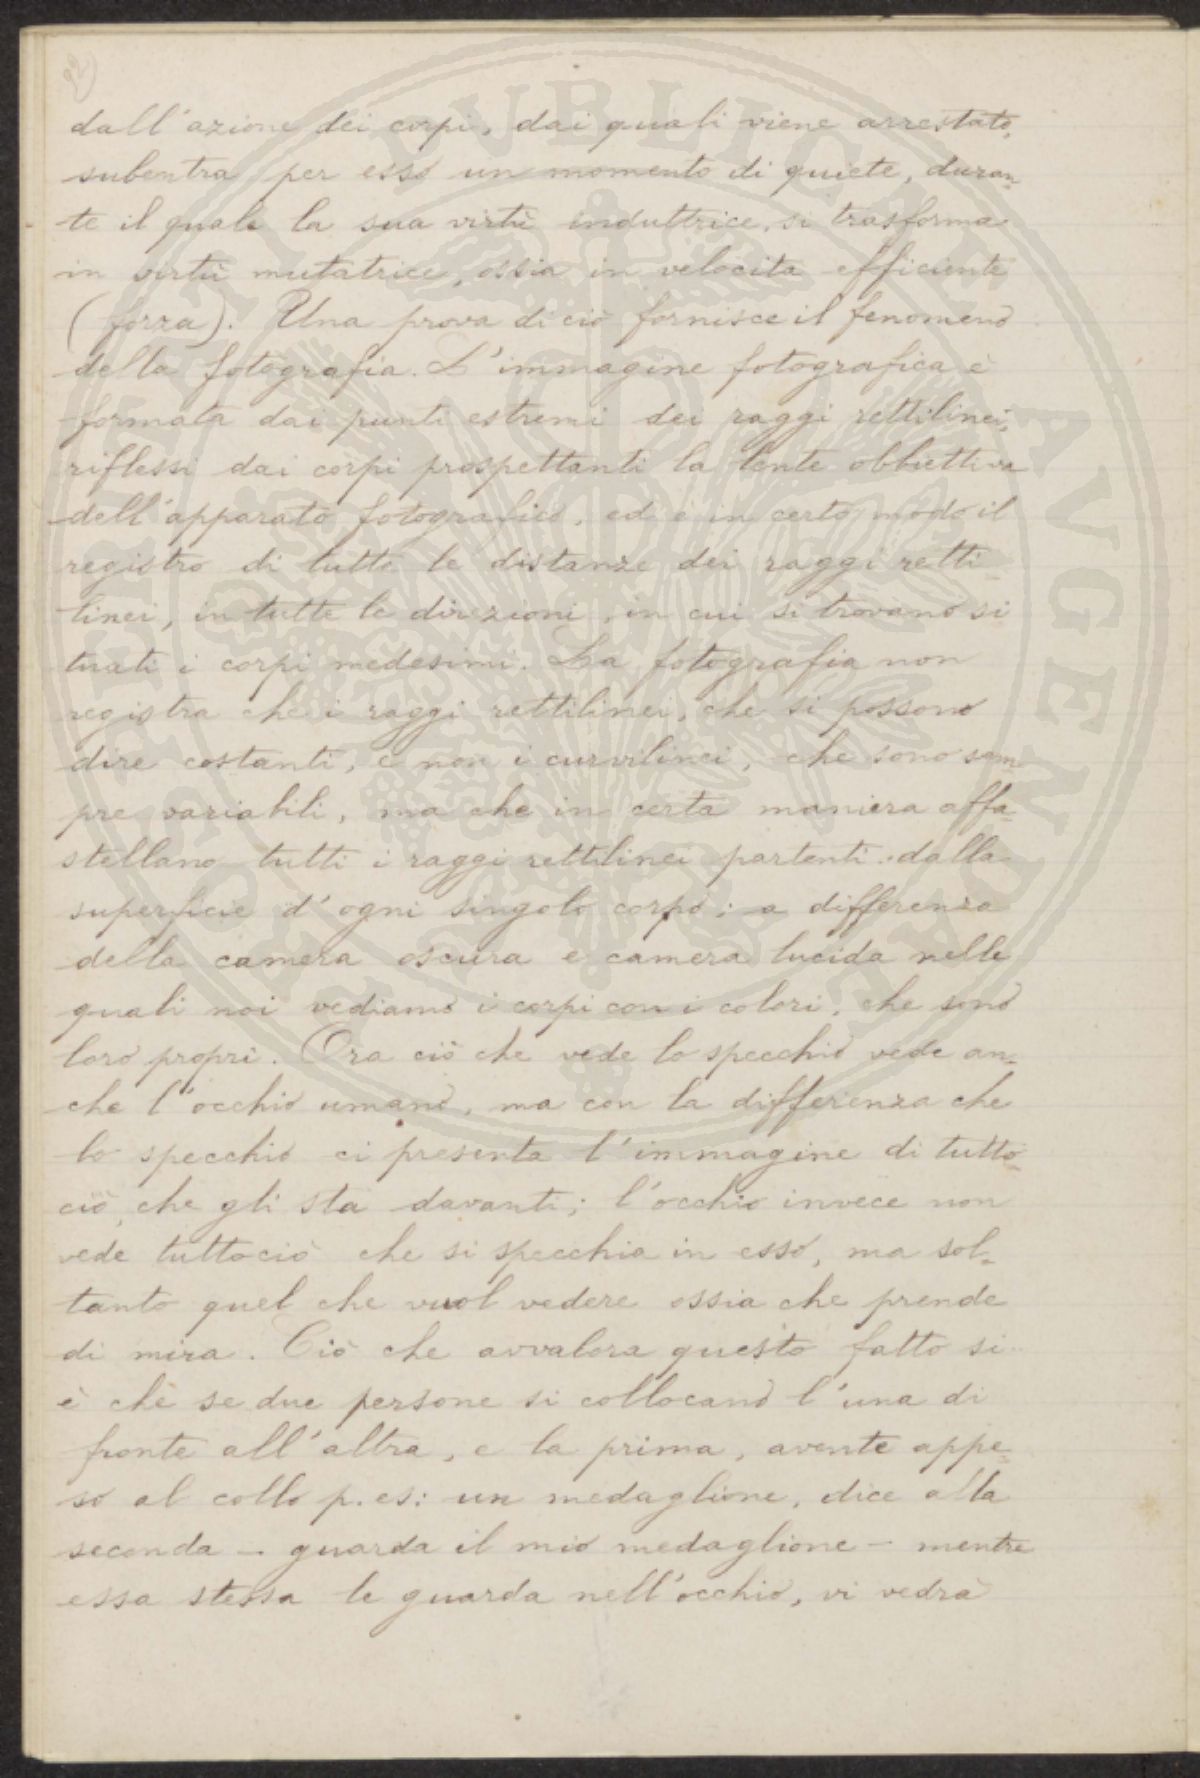 dall'azione dei corpi, dai quali viene arrestato,
subentra per esso un momento di quiete, duran-
te il quale la sua virtù induttrice, si trasforma
in virtù mutatrice, ossia in velocita efficiente
(forza). Una prova di ciò fornisce il fenomeno
della fotografia. L'immagine fotografica è
formata dai punti estremi dei raggi rettilinei,
riflessi dai corpi prospettanti la lente obbiettiva
dell'apparato fotografico, ed è in certo modo il
registro di tutte le distanze dei raggi retti
linei, in tutte le direzioni, in cui si trovano si
tuati i corpi medesimi. La fotografia non
registra che i raggi rettilinei, che si possono
dire costanti, e non i curvilinei, che sono sem
pre variabili, ma che in certa maniera affa-
stellano tutti i raggi rettilinei partenti dalla
superficie d'ogni singolo corpo; a differenza
della camera oscura e camera lucida nelle
quali noi vediamo i corpi con i colori, che sono
loro propri. Ora ciò che vede lo specchio vede an-
che l'occhio umano, ma con la differenza che
lo specchio ci presenta l'immagine di tutto
ciò, che gli sta davanti; l'occhio invece non
vede tuttociò che si specchia in esso, ma sol-
tanto quel che vuol vedere ossia che prende
di mira. Ciò che avvalora questo fatto si
è che se due persone si collocano l'una di
fronte all'altra, e la prima, avente appe-
so al collo p. es: un medaglione, dice alla
seconda - guarda il mio medaglione - mentre
essa stessa le guarda nell'occhio, vi vedrà
PVBLICAE
AVGENDAE